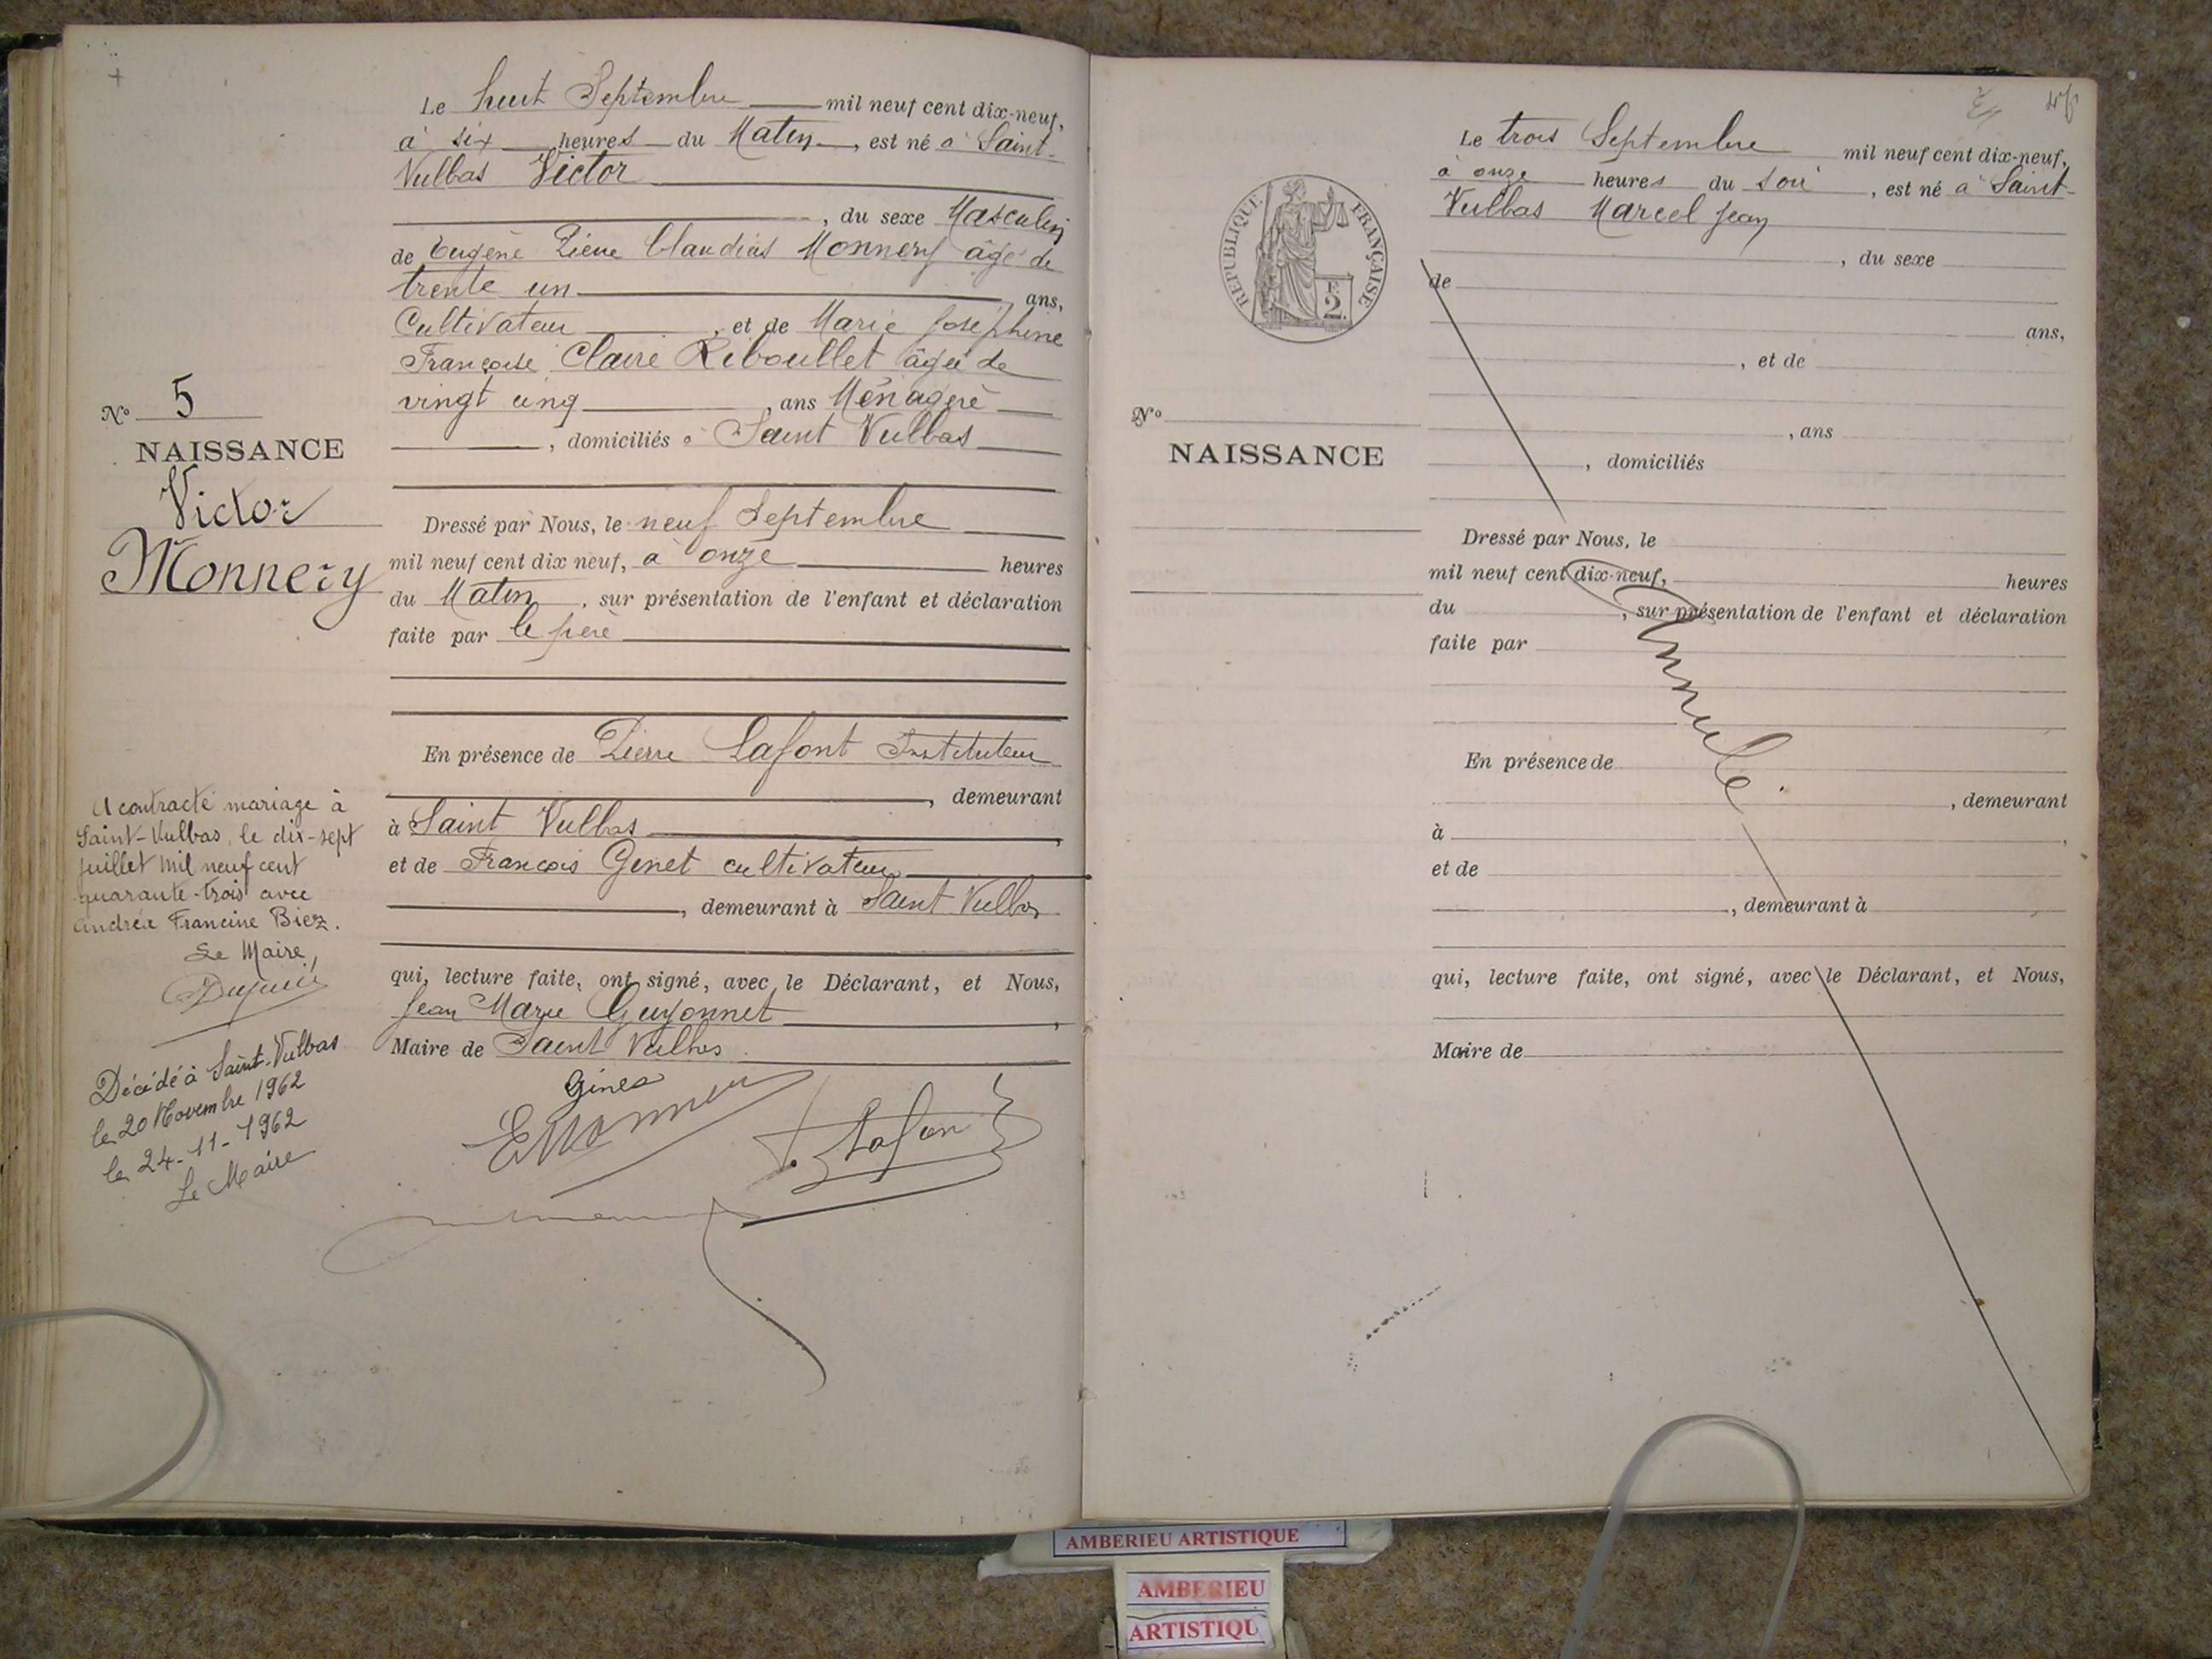 Le huit Septembre mil neuf cent dix-neuf,
à six heures du Matin, est né à Saint-
Vulbas Victor
, du sexe Masculin
de Eugène Pierre Claudius Monnery âgé de
trente un ans,
Cultivateur, et de Marie Joséphine
Françoise Claire Riboullet âgée de
vingt cinq, ans Ménagère
, domiciliés à Saint Vulbas
N° 5
NAISSANCE
Victor
Monnery
Dressé par Nous, le neuf Septembre
mil neuf cent dix neuf, à onze heures
du Matin, sur présentation de l'enfant et déclaration
faite par le père
En présence de Pierre Lafont Instituteur
, demeurant
à Saint Vulbas,
et de François Ginet cultivateur
, demeurant à Saint Vulbas
qui, lecture faite, ont signé, avec le Déclarant, et Nous,
Jean Marie Guyonnet,
Maire de Saint Vulbas
Ginet
EMonnery
Lafon
A contracté mariage à
Saint-Vulbas, le dix-sept
juillet mil neuf cent
quarante-trois avec
Andréa Francine Biez.
Le Maire,
Décédé à Saint-Vulbas
le 20 Novembre 1962
le 24-11-1962
Le Maire
RÉPUBLIQUE FRANÇAISE
F.
2
Le trois Septembre mil neuf cent dix-neuf,
à onze heures du soir, est né à Saint-
Vulbas Marcel Jean
, du sexe
de
ans,
, et de
, ans
, domiciliés
N°
NAISSANCE
Dressé par Nous, le
mil neuf cent dix-neuf, heures
du , sur présentation de l'enfant et déclaration
faite par
Annulé.
En présence de
, demeurant
à ,
et de
, demeurant à
qui, lecture faite, ont signé, avec le Déclarant, et Nous,
Maire de
AMBERIEU ARTISTIQUE
AMBERIEU
ARTISTIQU